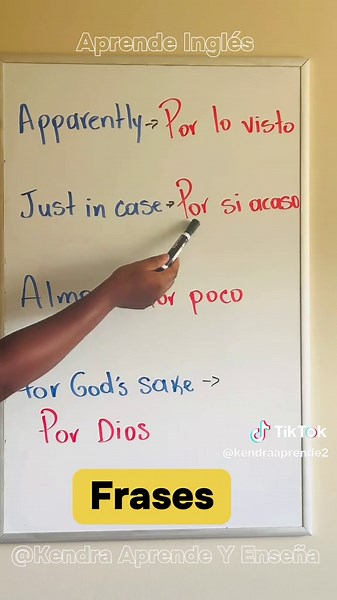 Aprende Inglés
Apparently → Por lo visto
Just in case → Por si acaso
poco
for God's sake →
Por Dios
TikTok
@kendraaprende2
Frases
@Kendra Aprende Y Enseña